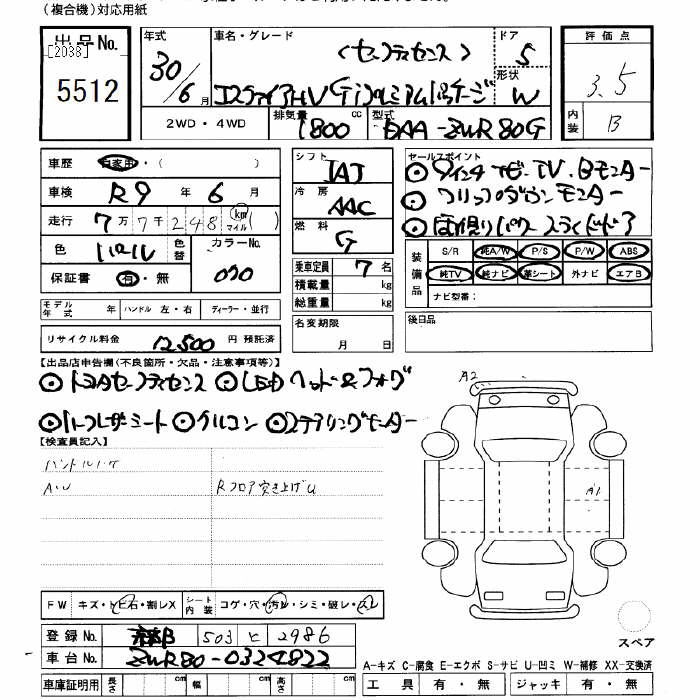 (複合機)対応用紙
出品No. [2038] 5512
年式 30/6月
車名・グレード (セーフティセンス)
エスクァイアHV Gi プレミアムパッケージ
ドア 5
形状 W
評価点 3.5
内装 B
2WD・4WD 排気量 1800 cc 型式 DAA-ZWR80G
車歴 自家用・( )
車検 R9年 6月
走行 7万7千248 km マイル ( )
色 パール 色替 カラーNo. 070
保証書 有・無
シフト IAT
冷房 AAC
燃料 G
乗車定員 7名
積載量 kg
総重量 kg
セールスポイント
◎9インチナビ-TV、Bモニター
◎フリップダウンモニター
◎両側パワースライドドア
装備品 S/R 純A/W P/S P/W ABS
純TV 純ナビ 革シート 外ナビ エアB
ナビ型番:
モデル年式 年 ハンドル 左・右 ディーラー・並行
リサイクル料金 12,500 円 預託済
名変期限 月 日
後日品
【出品店申告欄(不良箇所・欠品・注意事項等)】
◎トヨタセーフティセンス ◎LEDヘッド&フォグ
◎ハーフレザーシート ◎クルコン ◎ステアリングヒーター
【検査員記入】
ハンドルハゲ
A・U Rフロア突き上げU
A2
A1
FW キズ・トビ石・割レX シート内装 コゲ・穴・汚レ・シミ・破レ・スレ
登録No. 503 と 2986
車台No. ZWR80-0324822
車庫証明用 長さ cm 幅 cm 高さ cm
スペア
A-キズ C-腐食 E-エクボ S-サビ U-凹ミ W-補修 XX-交換済
工具 有・無 ジャッキ 有・無